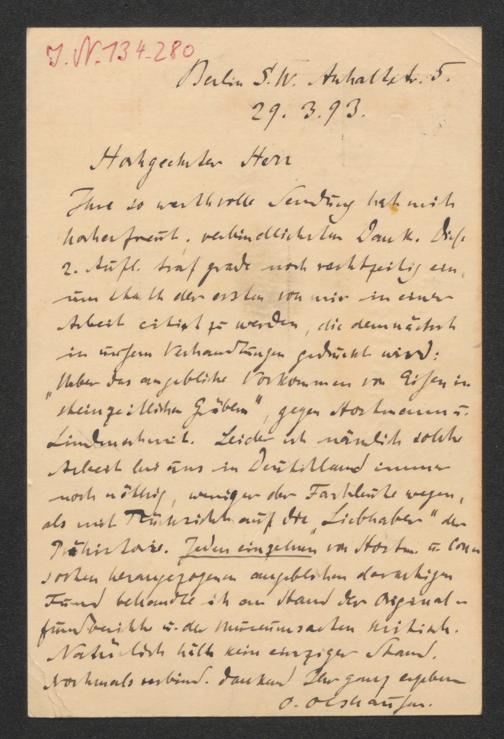 J. N. 134.280
Berlin S.W. Anhaltstr. 5.
29. 3. 93.
Hochgeehrter Herr
Ihre so werthvolle Sendung hat mich
hocherfreut, verbindlichsten Dank. Diese
2. Aufl. traf grade noch rechtzeitig ein,
um statt der ersten von mir in einer
Arbeit citirt zu werden, die demnächst
in unsern Verhandlungen gedruckt wird:
"Ueber das angebliche Vorkommen von Eisen in
steinzeitlichen Gräbern", gegen Hostmann u.
Lindenschmit. Leider ist nämlich solche
Arbeit bei uns in Deutschland immer
noch nöthig, weniger der Fachleute wegen,
als mit Rücksicht auf die "Liebhaber" der
Prähistorie. Jeden einzelnen von Hostm. u. Con-
sorten herangezogenen angeblichen derartigen
Fund behandle ich an Hand der Original-
fundberichte u. der Museumsacten kritisch.
Natürlich hält kein einziger Stand.
Nochmals verbind. dankend Ihr ganz ergeben
O. Olshausen.